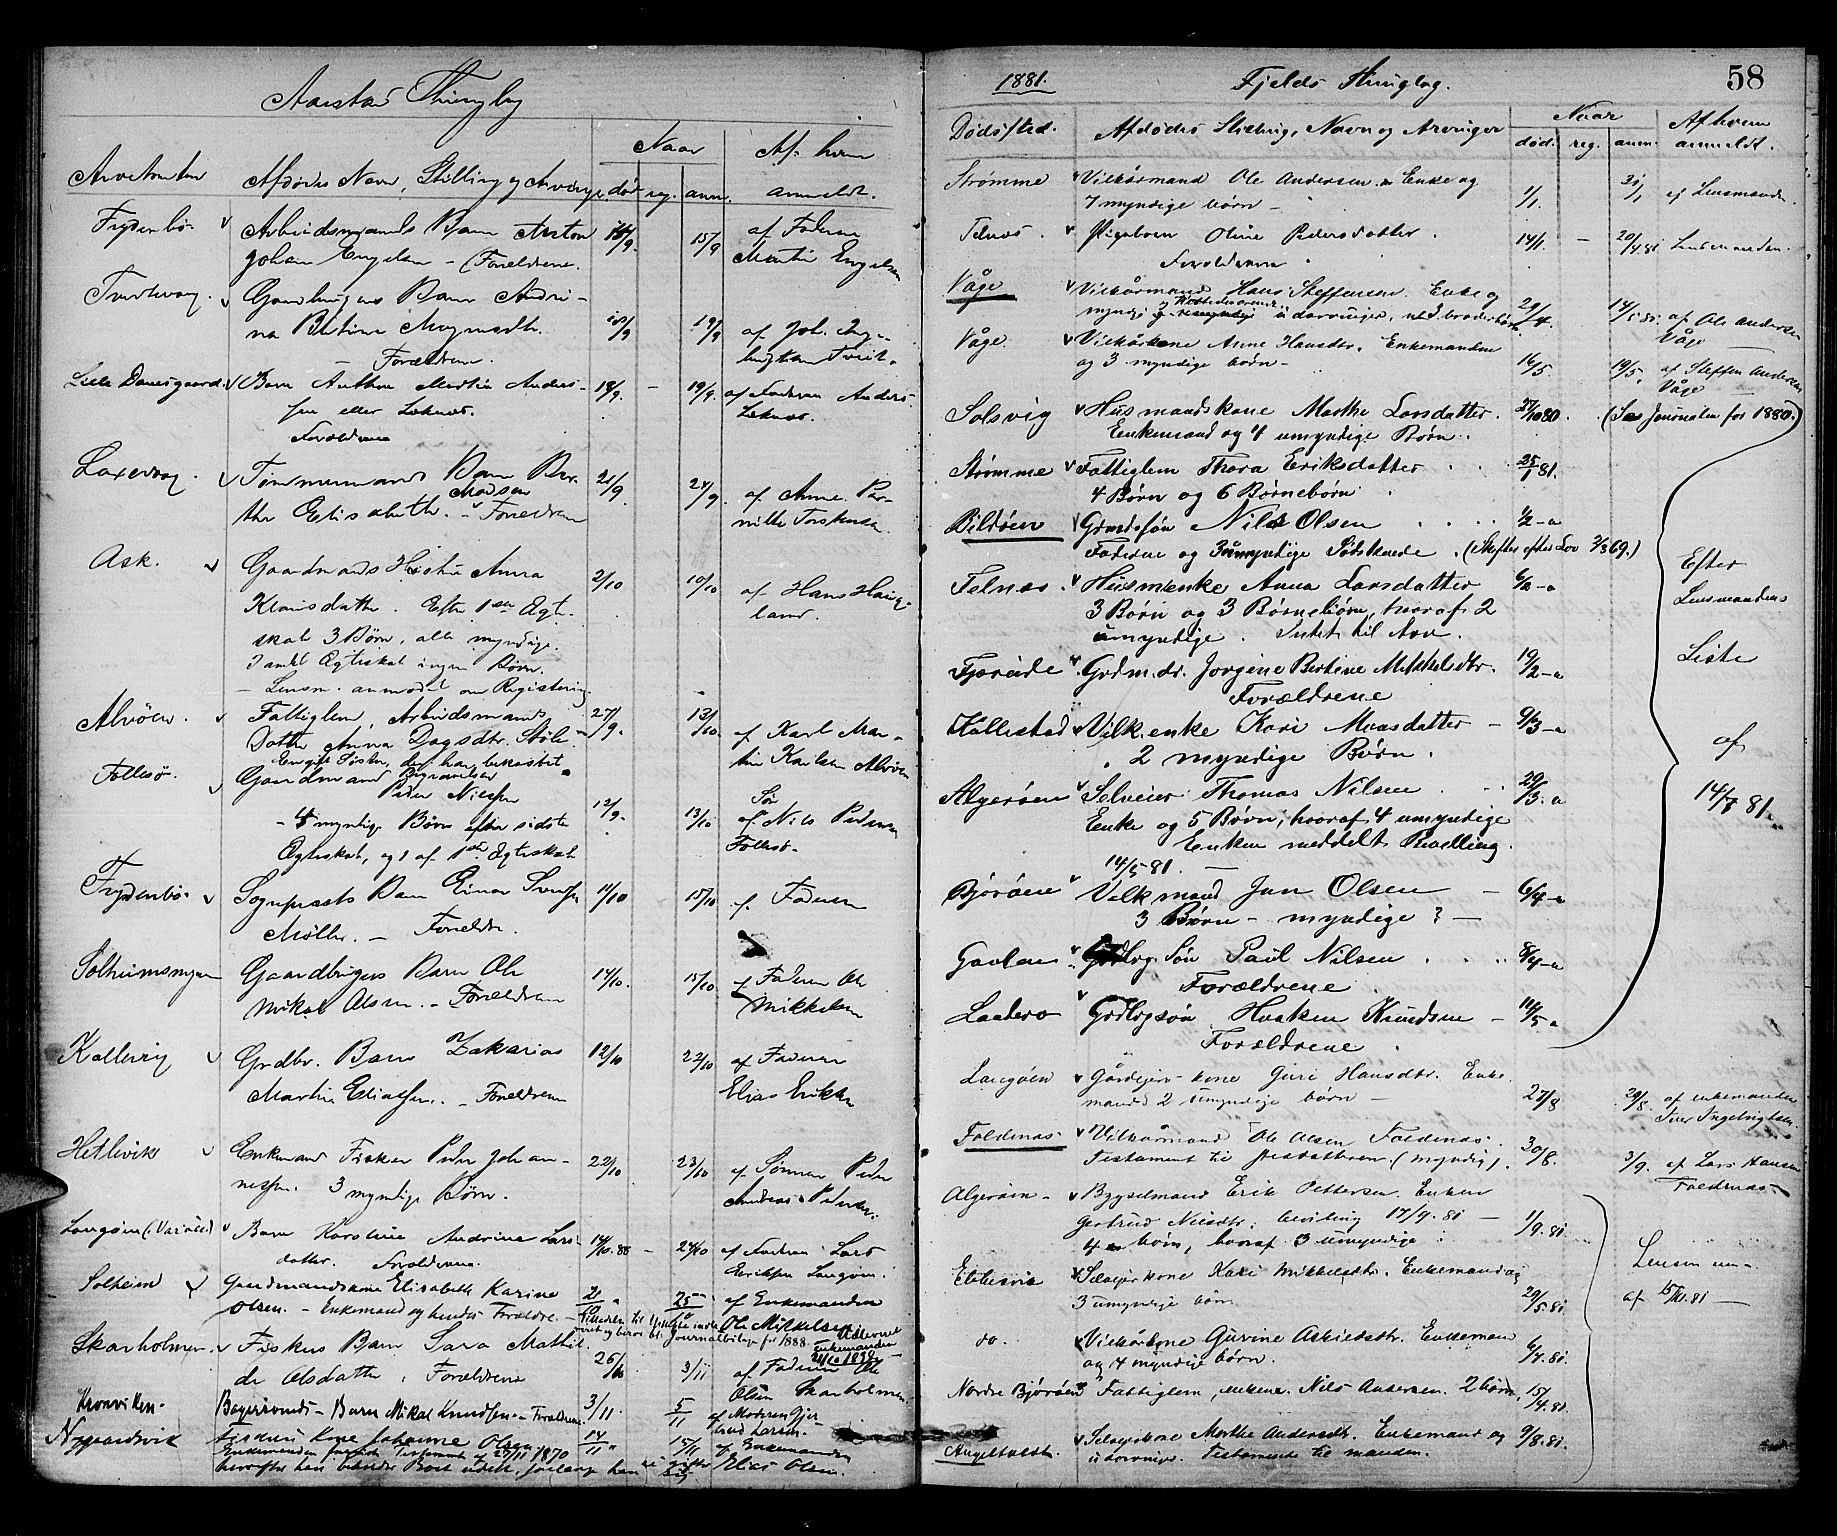 Aarstad Thinglag
Naar
Af hvem
Afdødes Navn, Stilling og Arvinge
død
reg.
anm.
anmeldt.
Frydenbø
Arbeidsmands Barn Anton
Johan Engelsen – (Forældrene.
/9.
15/9
af Faderen
Martin Engelsen
Gaardbrugers Barn Andri-
na Bertine
Forældrene.
18/9
19/9
af Joh.
Lille Damsgaard
Barn Anthon Martin Anders-
sen eller Leknæs.
Forældrene
18/9.
–
19/9.
af Faderen Anders
Leknæs.
Laxevaag.
Tømmermands Barn Ber-
Madsen
the Elisabeth. – Forældrene
21/9
24/9
af Anne Per-
nille Torskersen
Ask.
Gaardmands Hustru Anna
Knudsdatter. Efter 1ste Ægt.
skab 3 Børn, alle myndige.
I andet Ægteskab ingen Børn.
– Lensm. anmodet om Registering.
2/10
10/10
af Hans Haug-
land.
Alvøen.
Fattiglem, Arbeidsmands
Datter Anna Dagsdtr.
Engift Søster, der har bekostet
Begravelsen
27/9.
13/10
af Karl Mar-
tin Karlsen Alvøen
Follesø.
Gaardmand
Peder Nilssen
– 4 myndige Børn efter sidste
Ægteskab, og 1 af 1ste Ægteskab
12/9.
13/10
Søn
af Nils Pedersen
Follesø.
Frydenbø
Sogneprests Barn Einar
Møller. – Forældre.
11/10
15/10
af Faderen
Solheimsmyren
Gaardbrugers Barn Ole
Mikal Olsen. – Forældrene
14/10.
15/10
af Faderen Ole
Mikkelsen
Grdbr. Barn Zakarias
Martin Eliassen. – Forældrene
12/10
22/10
af Faderen
Elias Eriksen
Hetlevik
Enkemand Fisker Peder Johan-
nessen. 3 myndige Børn.
22/10
23/10
af Sønnen Peder
Andreas Pedersen.
Barn Karoline Andrine Lars-
datter. Forældrene.
14/10.88
–
24/10
af Faderen Lars
Eriksen Langøen.
Solheim
Gaardmandskone Elisabeth Karine
Olsen. – Enkemand og hendes Forældre –
21/10
25/10
af Enkemanden
Ole Mikkelsen
Journalbilag for 1888. – Udleveret
enkemanden
Skarholmen
Fiskers Barn Sara Mathil-
de Olsdatter, Forældrene
26/10
3/11
af Faderen Ole
Olsen Skarholmen
Kronviken.
Barn Mikal Knudsen – Forældre.
3/11.
5/11
af Moderen Gjer-
trud Larsen.
Nygaardsvik
Fiskers Kone Johanne Olsen
14/11
15/11
af Enkemanden
Elias Olsen.
Enkemanden
1881.
Fjelds Thinglag.
58
Dødssted.
Afdødes Stilling, Navn og Arvinger
Naar
død.
reg.
anm.
Af hvem
anmeldt.
Strømme
Vilkårmand Ole Andersen. Enke og
7 myndige børn –
1/1.
31/1
af Lensmanden.
Telnæs.
Pigebarn Oline Pedersdatter.
Forældrene
14/1.
–
20/4.81
Lensmanden.
Våge
Vilkårmand Hans Steffensen. Enke og
29/4.
14/5 81.
af Ole Andersen
Våge
Våge.
Vilkårkone Anne Hansdtr. Enkemanden
og 3 myndige børn –
16/5.
19/5.
af Steffen Andersen
Våge
Solsvig
Husmandskone Marthe Larsdatter.
Enkemand og 4 umyndige Børn.
27/10 80.
(Se Journalen for 1880.)
Strømme
Fattiglem Thora Eriksdatter
4 Børn og 6 Børnebørn.
25/1 81.
Bildøen
Grmdssøn Nils Olsen
Faderen og 3 umyndige Sødskende. (Skiftes efter Lov 2/3 69.)
1/2 – a
Telnæs.
Husmenke Anna Larsdatter
3 Børn og 3 Børnebørn, hvoraf 2
umyndige. Intet til Arv.
6/2 – a
Efter
Lensmandens
Liste
af
14/7 81.
Fjæreide
Grdm.dr. Jorgine Bertine Mikkelsdtr.
Forældrene
19/2 – a
Kallestad
Vilk.enke Kari Monsdatter –
2 myndige Børn.
9/3 – a
Algerøen
Selveier Thomas Nilsen
Enke og 5 Børn, hvoraf 4 umyndige
Enken meddelt Bevilling.
14/5 81. –
29/3. a
Bjørøen
Vilkmand Jan Olsen –
3 Børn – myndige ? –
6/4 – a
Gavlen
Grdbrg. Søn Paul Nilsen
Forældrene.
8/4 – a
Landro
Grdbrgsøn Haaken Knudsen –
Forældrene.
11/5 – a
Langøen
Gårdejers kone Guri Hansdtr. Enke-
mand 2 umyndige børn –
27/8
29/8.
af enkemanden
Iver Ingebrigtsen.
Foldnæs.
Vilkårmand Ole Olsen Foldnæs.
Testament til Stedatteren. (myndig).
30/8.
3/9.
af Lars Hansen
Foldnæs.
Algerøen –
Bygselmand Erik Pettersen. Enken
Gertrud Nilsdtr; bevilling 17/9.81 –
4 børn, hvoraf 3 umyndige.
1/9.81.
Lensman-
af 15/11.81 –
Ebbesvik
Selvejerkone Kari Mikkelsdtr. Enkemand og
3 umyndige børn
29/5.81.
do.
Vilkårkone Guvine Askildsdtr. Enkeman
og 4 myndige børn.
6/7.81.
Nordre Bjørøen
Fattiglem, enkem. Nils Andersen. 2 børn,
15/4.81.
Angeltveit.
Selvejerkone Marthe Andersdtr. Enkemand og
udarvinger. Testamente til manden.
9/8.81.